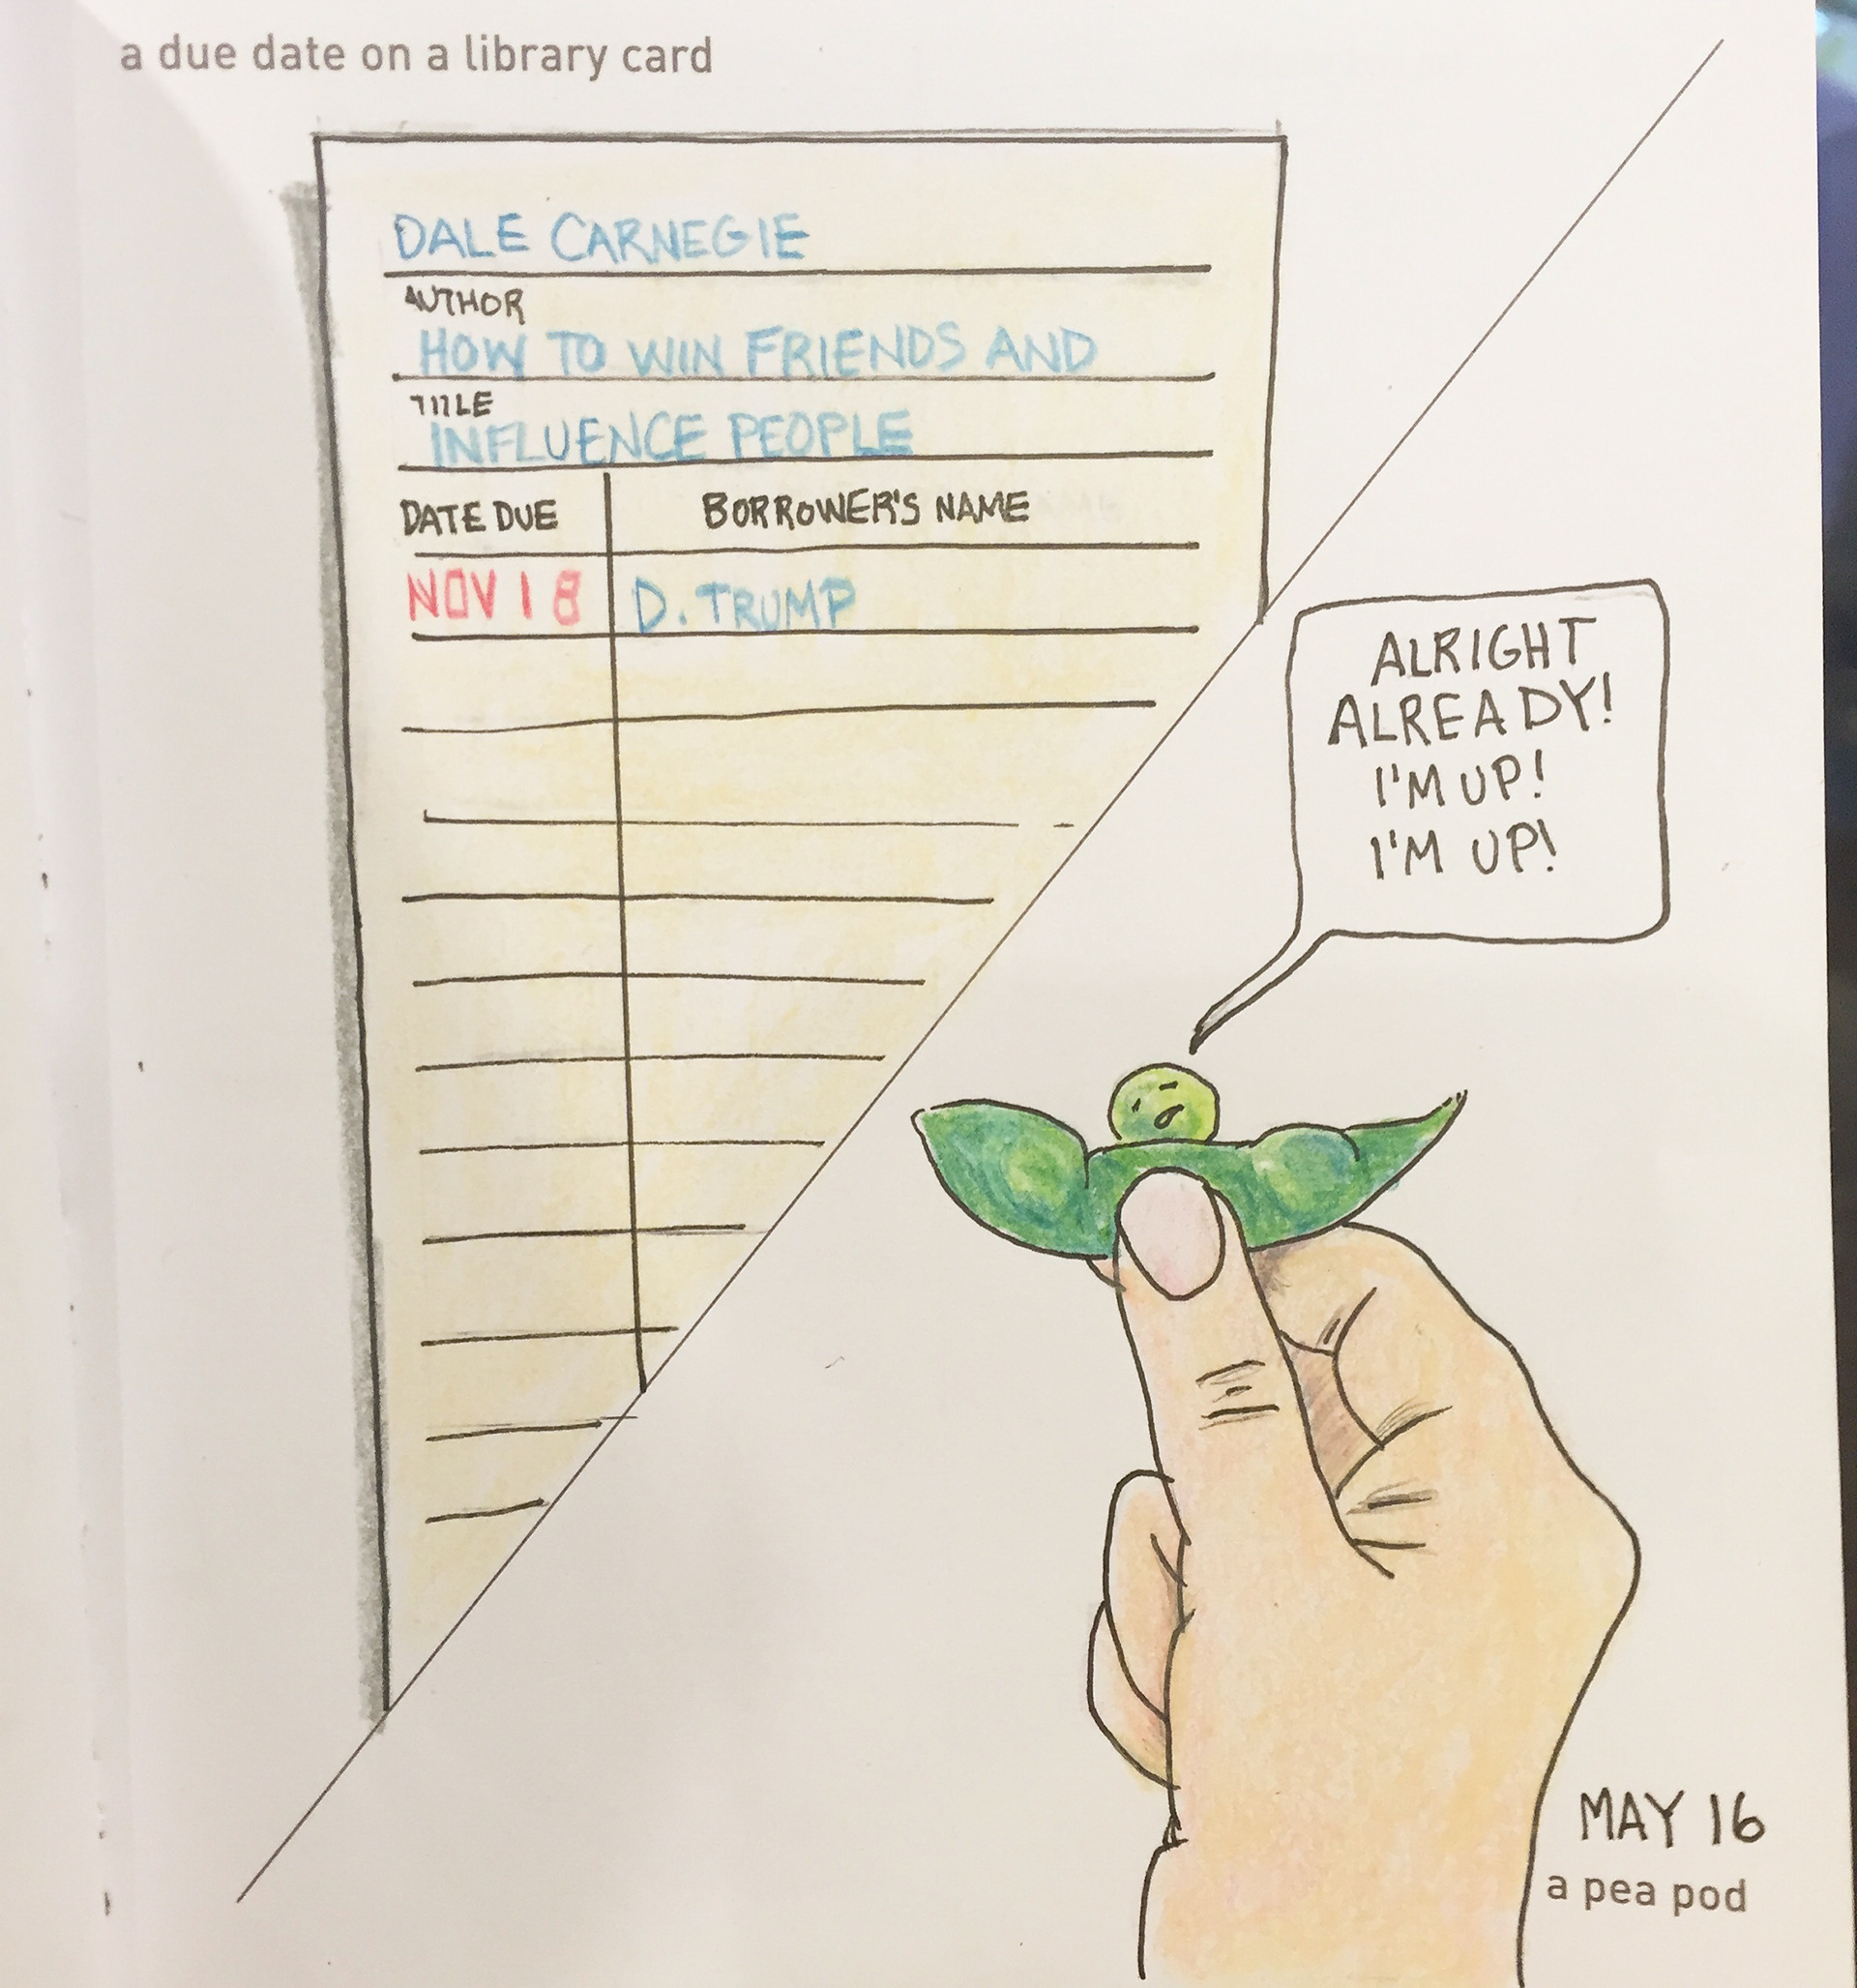 a due date on a library card
DALE CARNEGIE
AUTHOR
HOW TO WIN FRIENDS AND
TITLE
INFLUENCE PEOPLE
DATE DUE BORROWER'S NAME
NOV 18 D. TRUMP
ALRIGHT
ALREADY!
I'M UP!
I'M UP!
MAY 16
a pea pod